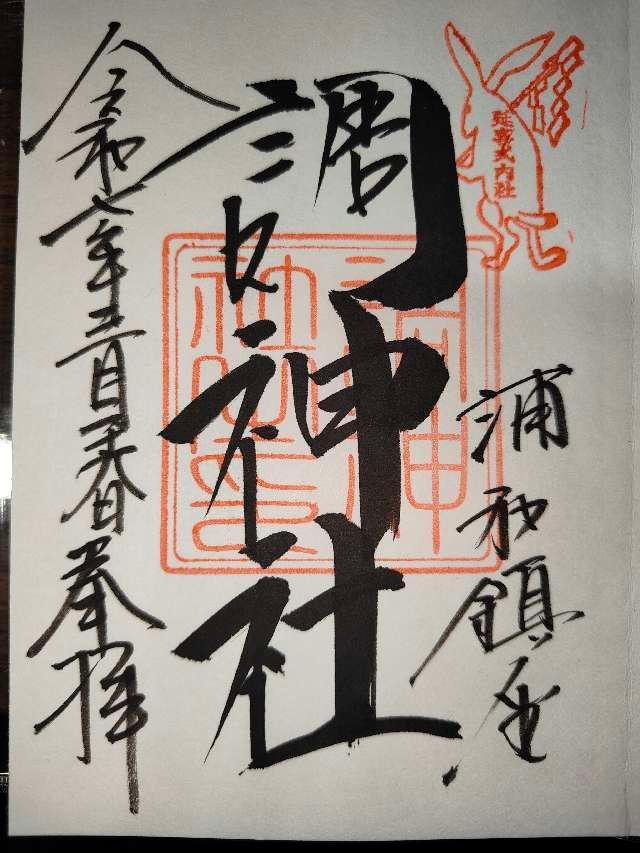 延喜式内社
浦和鎮座
調神社
調神社之印
令和七年三月奉拝